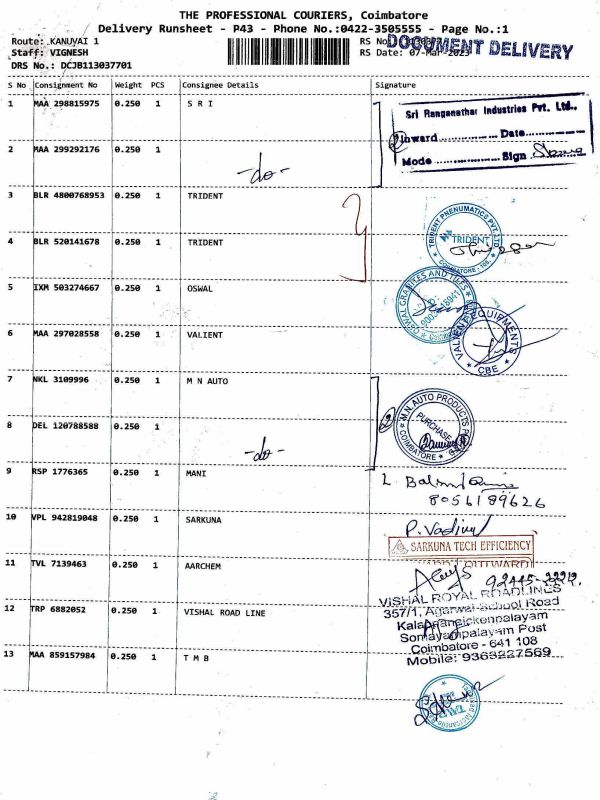 THE PROFESSIONAL COURIERS, Coimbatore
Delivery Runsheet - P43 - Phone No.:0422-3505555 - Page No.:1
Route: KANUVAI 1
Staff: VIGNESH
DRS No.: DCJB113037701
RS No.
RS Date: 07-Mar-2023
DOCUMENT DELIVERY
S No Consignment No Weight PCS Consignee Details Signature
1 MAA 298815975 0.250 1 S R I
Sri Ranganathar Industries Pvt. Ltd.,
Inward Date
Mode Sign
2 MAA 299292176 0.250 1 -do-
3 BLR 4800768953 0.250 1 TRIDENT
4 BLR 520141678 0.250 1 TRIDENT
TRIDENT PNEUMATICS PVT. LTD
TRIDENT
COIMBATORE
5 IXM 503274667 0.250 1 OSWAL
OSWAL GRANITES AND TILES
6 MAA 297028558 0.250 1 VALIENT
VALIENT EQUIPMENTS
CBE
7 NKL 3109996 0.250 1 M N AUTO
M.N. AUTO PRODUCTS
PURCHASE
COIMBATORE
8 DEL 120788588 0.250 1 -do-
9 RSP 1776365 0.250 1 MANI
8056189626
10 VPL 942819048 0.250 1 SARKUNA
P. Vadivel
SARKUNA TECH EFFICIENCY
OUTWARD
11 TVL 7139463 0.250 1 AARCHEM
12 TRP 6882052 0.250 1 VISHAL ROAD LINE
VISHAL ROYAL ROADLINES
357/1, Agarwal School Road
Somayampalayam Post
Coimbatore - 641 108
Mobile: 9363227569
13 MAA 859157984 0.250 1 T M B
TMB